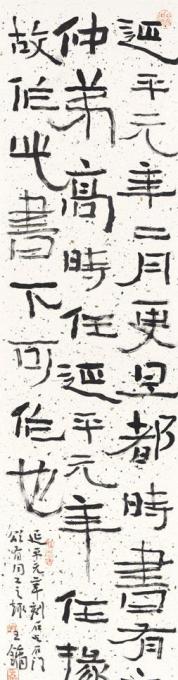 延平元年二月更旦都時書有
仲弟高時任延平元年任掾
故作此書下可作也
延平元年刻石与石门
颂有同工之 王镛